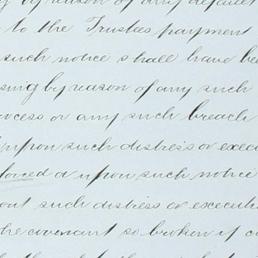 by reason of any default
to the Trustees payment
such notice shall have be
sing by reason of any such
ocess or any such breach
upon such distress or exec
forced or upon such notice
out such distress or executi
the covenant so broken if c